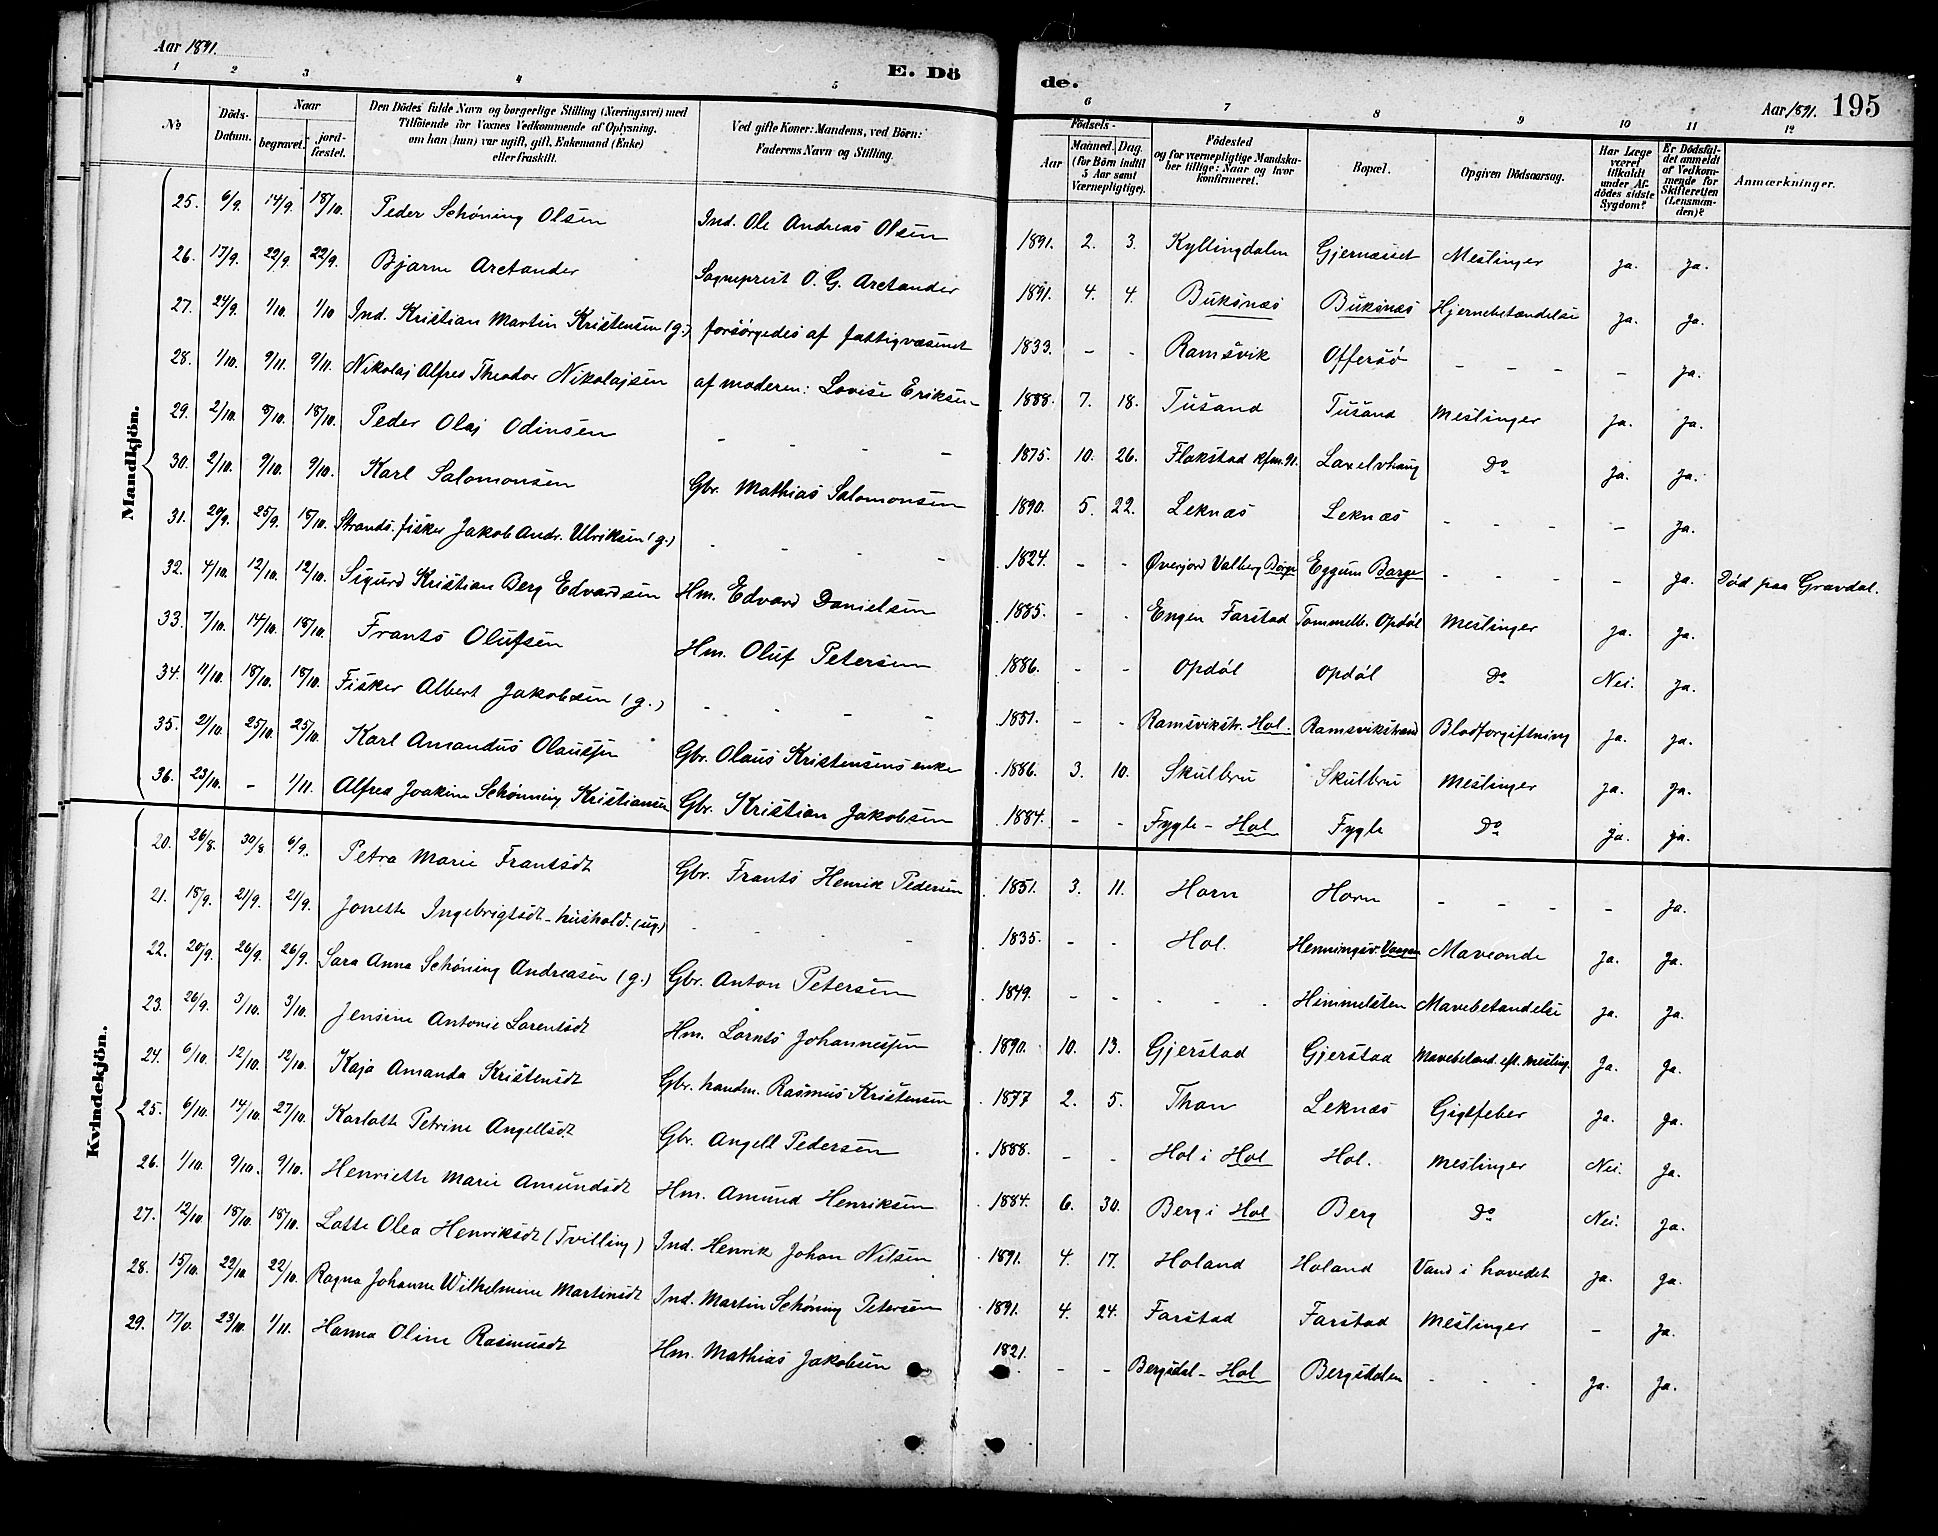 Aar 1891.
E. Dö
de.
Aar 1891. 195
1 2 3 4 5 6 7 8 9 10 11 12
No
Döds-Datum.
Naar
begravet.
jord-fæstet.
Den Dödes fulde Navn og borgerlige Stilling (Næringsvei) med
Tilföiende for Voxnes Vedkommende af Oplysning,
om han (hun) var ugift, gift, Enkemand (Enke)
eller fraskilt.
Ved gifte Koner: Mandens, ved Börn:
Faderens Navn og Stilling.
Födsels-
Aar
Maaned. Dag.
(for Börn indtil
5 Aar samt
Værnepligtige).
Födested
og for værnepligtige Mandska-
ber tillige: Naar og hvor
konfirmeret.
Bopæl.
Opgiven Dödsaarsag.
Har Læge
været
tilkaldt
under Af-
dödes sidste
Sygdom?
Er Dödsfal-
det anmeldt
af Vedkom-
mende for
Skifteretten
(Lensman-
den)?
Anmærkninger.
Mandkjön.
25. 6/9. 14/9. 18/10. Peder Schöning Olsen Ind. Ole Andreas Olsen 1891. 2. 3. Kyllingdalen Gjernæsset Meslinger ja. ja.
26. 17/9. 22/9. 22/9. Bjarne Arctander Sogneprest O. G. Arctander 1891. 4. 4. Buksnæs Buksnæs Hjernebetændelse ja. ja.
27. 24/9. 1/10. 1/10 Ind. Kristian Martin Kristensen (g.) forsörgedes af Fattigvæsenet 1833. - - Ramsvik Offersö - - - - ja.
28. 1/10. 9/11. 9/11. Nikolaj Alfred Theodor Nikolajsen af moderen: Lovise Eriksen 1888. 7. 18. Tusand Tusand Meslinger ja. ja.
29. 2/10. 8/10. 18/10. Peder Olaj Odinsen - - - 1875. 10. 26. Flakstad kfm. 91. Laxelvhaug Do ja. ja.
30. 2/10. 9/10. 9/10. Karl Salomonsen Gbr. Mathias Salomonsen 1890. 5. 22. Leknæs Leknæs - - - - ja.
31. 20/9. 25/9. 18/10. Strands. fisker Jakob Andr. Ulriksen (g.) - - - - 1824. - - Øverjord Valberg Borge Eggum Borge - - - - ja. Död paa Gravdal.
32. 4/10. 12/10. 12/10. Sigurd Kristian Berg Edvardsen Hm. Edvard Danielsen 1885. - - Engen Farstad Tommelb. Opdöl Meslinger ja. ja.
33. 7/10. 14/10. 18/10. Frants Olufsen Hm. Oluf Petersen 1886. - - Opdöl Opdöl Do Nei. ja.
34. 11/10. 18/10. 18/10. Fisker Albert Jakobsen (g.) - - - - 1851. - - Ramsvikstr. Hol. Ramsvikstrand Blodforgiftning ja. ja.
35. 21/10. 25/10. 25/10. Karl Amandus Olaussen Gbr. Olaus Kristensens enke 1886. 3. 10. Skulbru Skulbru Meslinger ja. ja.
36. 23/10. - 1/11. Alfred Joakim Schönning Kristiansen Gbr. Kristian Jakobsen 1884. - - Fygle - Hol Fygle Do ja. ja.
Kvindekjön.
20. 26/8. 30/8. 6/9. Petra Marie Frantsdt Gbr. Frants Henrik Pedersen 1851. 3. 11. Horn Horn - - - - ja.
21. 18/9. 21/9. 21/9. Jonette Ingebrigtsdt - hushold. (ug.) - - - 1835. - - Hol. Henningsv. Vaagan Maveonde ja. ja.
22. 20/9. 26/9. 26/9. Sara Anna Schöning Andreasen (g.) Gbr. Anton Petersen 1849. - - - - - Himmelsten Mavebetændelse ja. ja.
23. 26/9. 3/10. 3/10. Jensine Antonie Larentsdt Hm. Lornts Johannessen 1890. 10. 13. Gjerstad Gjerstad Mavebetænd. eft. mesling. ja. ja.
24. 6/10. 12/10. 12/10. Kaja Amanda Kristensdt Gbr. handm. Rasmus Kristensen 1877 2. 5. Thon Leknæs Gigtfeber ja. ja.
25. 6/10. 14/10. 27/10. Karlotte Petrine Angellsdt Gbr. Angell Pedersen 1888. - - Hol i Hol Hol. Meslinger Nei. ja.
26. 1/10. 9/10. 9/10. Henriette Marie Amundsdt Hm. Amund Henriksen 1884. 6. 30. Berg i Hol Berg Do Nei. ja.
27. 12/10. 18/10. 18/10. Lotte Olea Henriksdt (Tvilling) Ind. Henrik Johan Nilsen 1891. 4. 17. Holand Holand Vand i hovedet ja. ja.
28. 15/10. 22/10. 22/10. Ragna Johanne Wilhelmine Martinsdt Ind. Martin Schöning Petersen 1891. 4. 24. Farstad Farstad Meslinger - ja.
29. 23/10. 1/11. Hanna Oline Rasmusdt Hm. Mathias Jakobsen 1821. - - Bergsdal - Hol Bergsdalen - - - ja. ja.